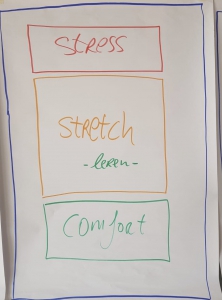 Stress
Stretch
-leren-
Comfort